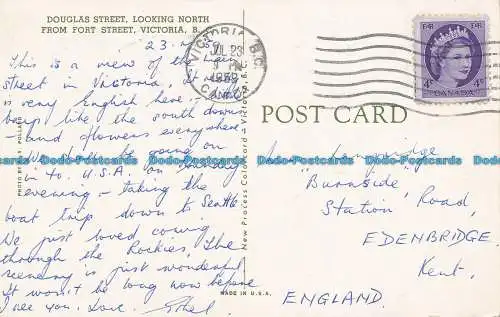 DOUGLAS STREET, LOOKING NORTH
FROM FORT STREET, VICTORIA, B.
23.7.
This is a view of the main
street in Victoria. It
is very English here,
like the south downs
and flowers everywhere.
be going on
to U.S.A. on Sunday
evening - taking the
boat trip down to Seattle.
We just loved coming
through the Rockies, The
scenery is just wonderful
It won't be long now before
I see you. Love. Ethel
PHOTO BY
New Process Colorcard - Victoria, B.C.
MADE IN U.S.A.
VICTORIA B.C.
JUL 23
PM
CANADA
4¢ 4¢
CANADA
POST CARD
Langridge
"Burnside"
Station Road,
EDENBRIDGE
Kent.
ENGLAND.
Dado-Postcards Dado-Postcards Dado-Postcards Dado-Postcards